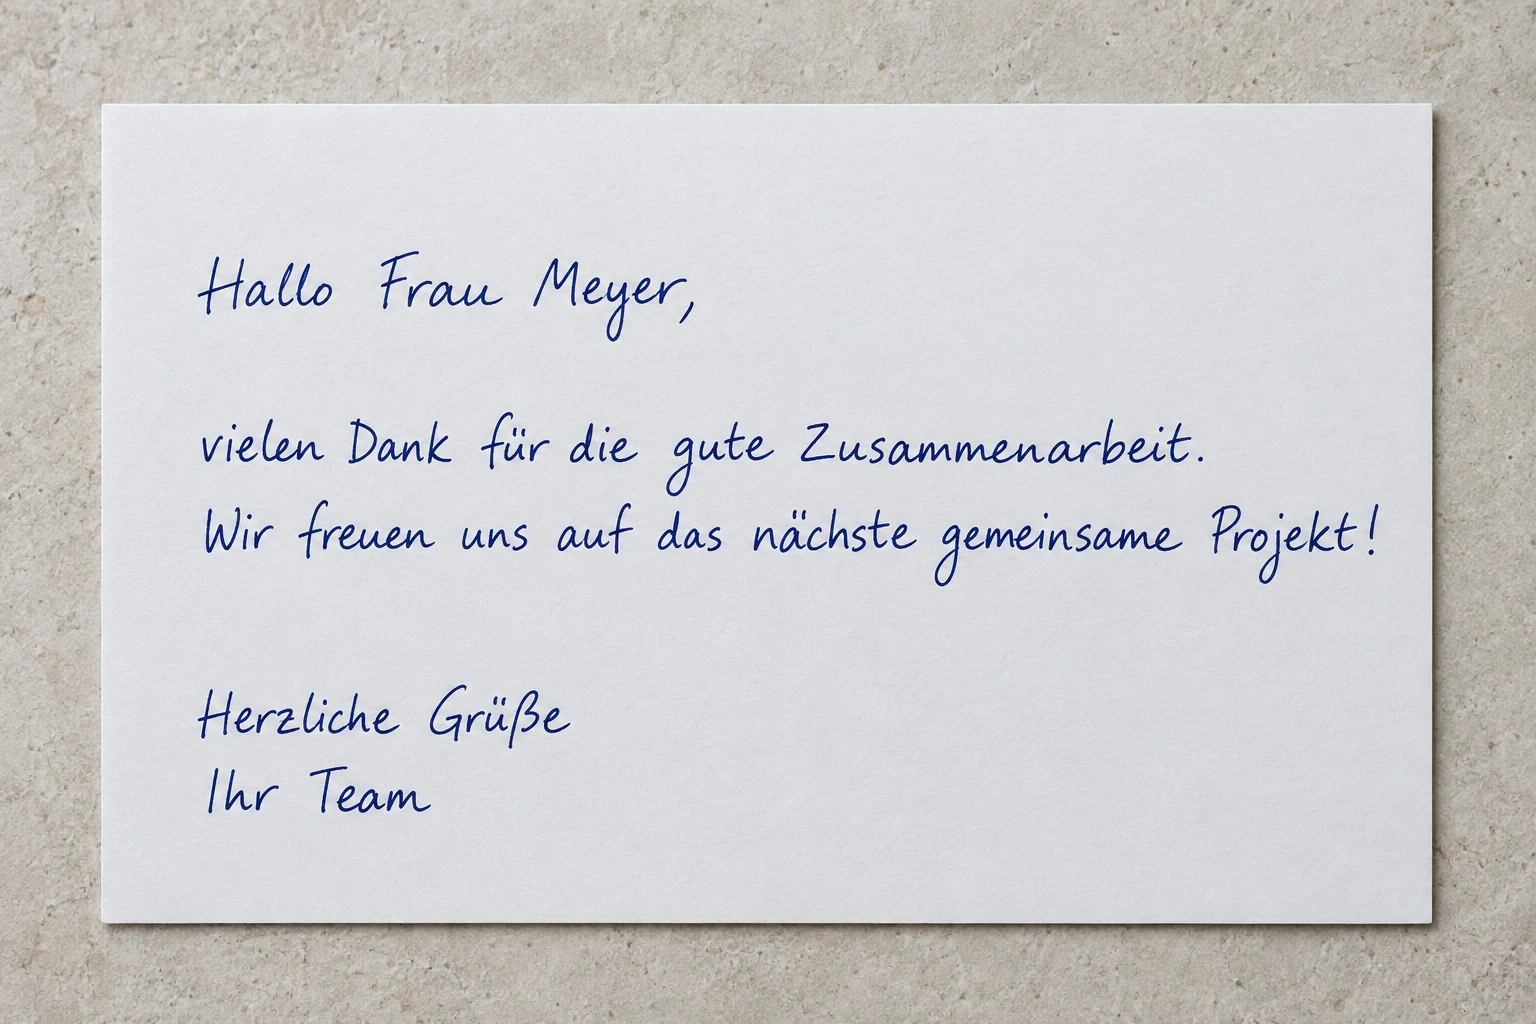 Hallo Frau Meyer,
vielen Dank für die gute Zusammenarbeit.
Wir freuen uns auf das nächste gemeinsame Projekt!
Herzliche Grüße
Ihr Team